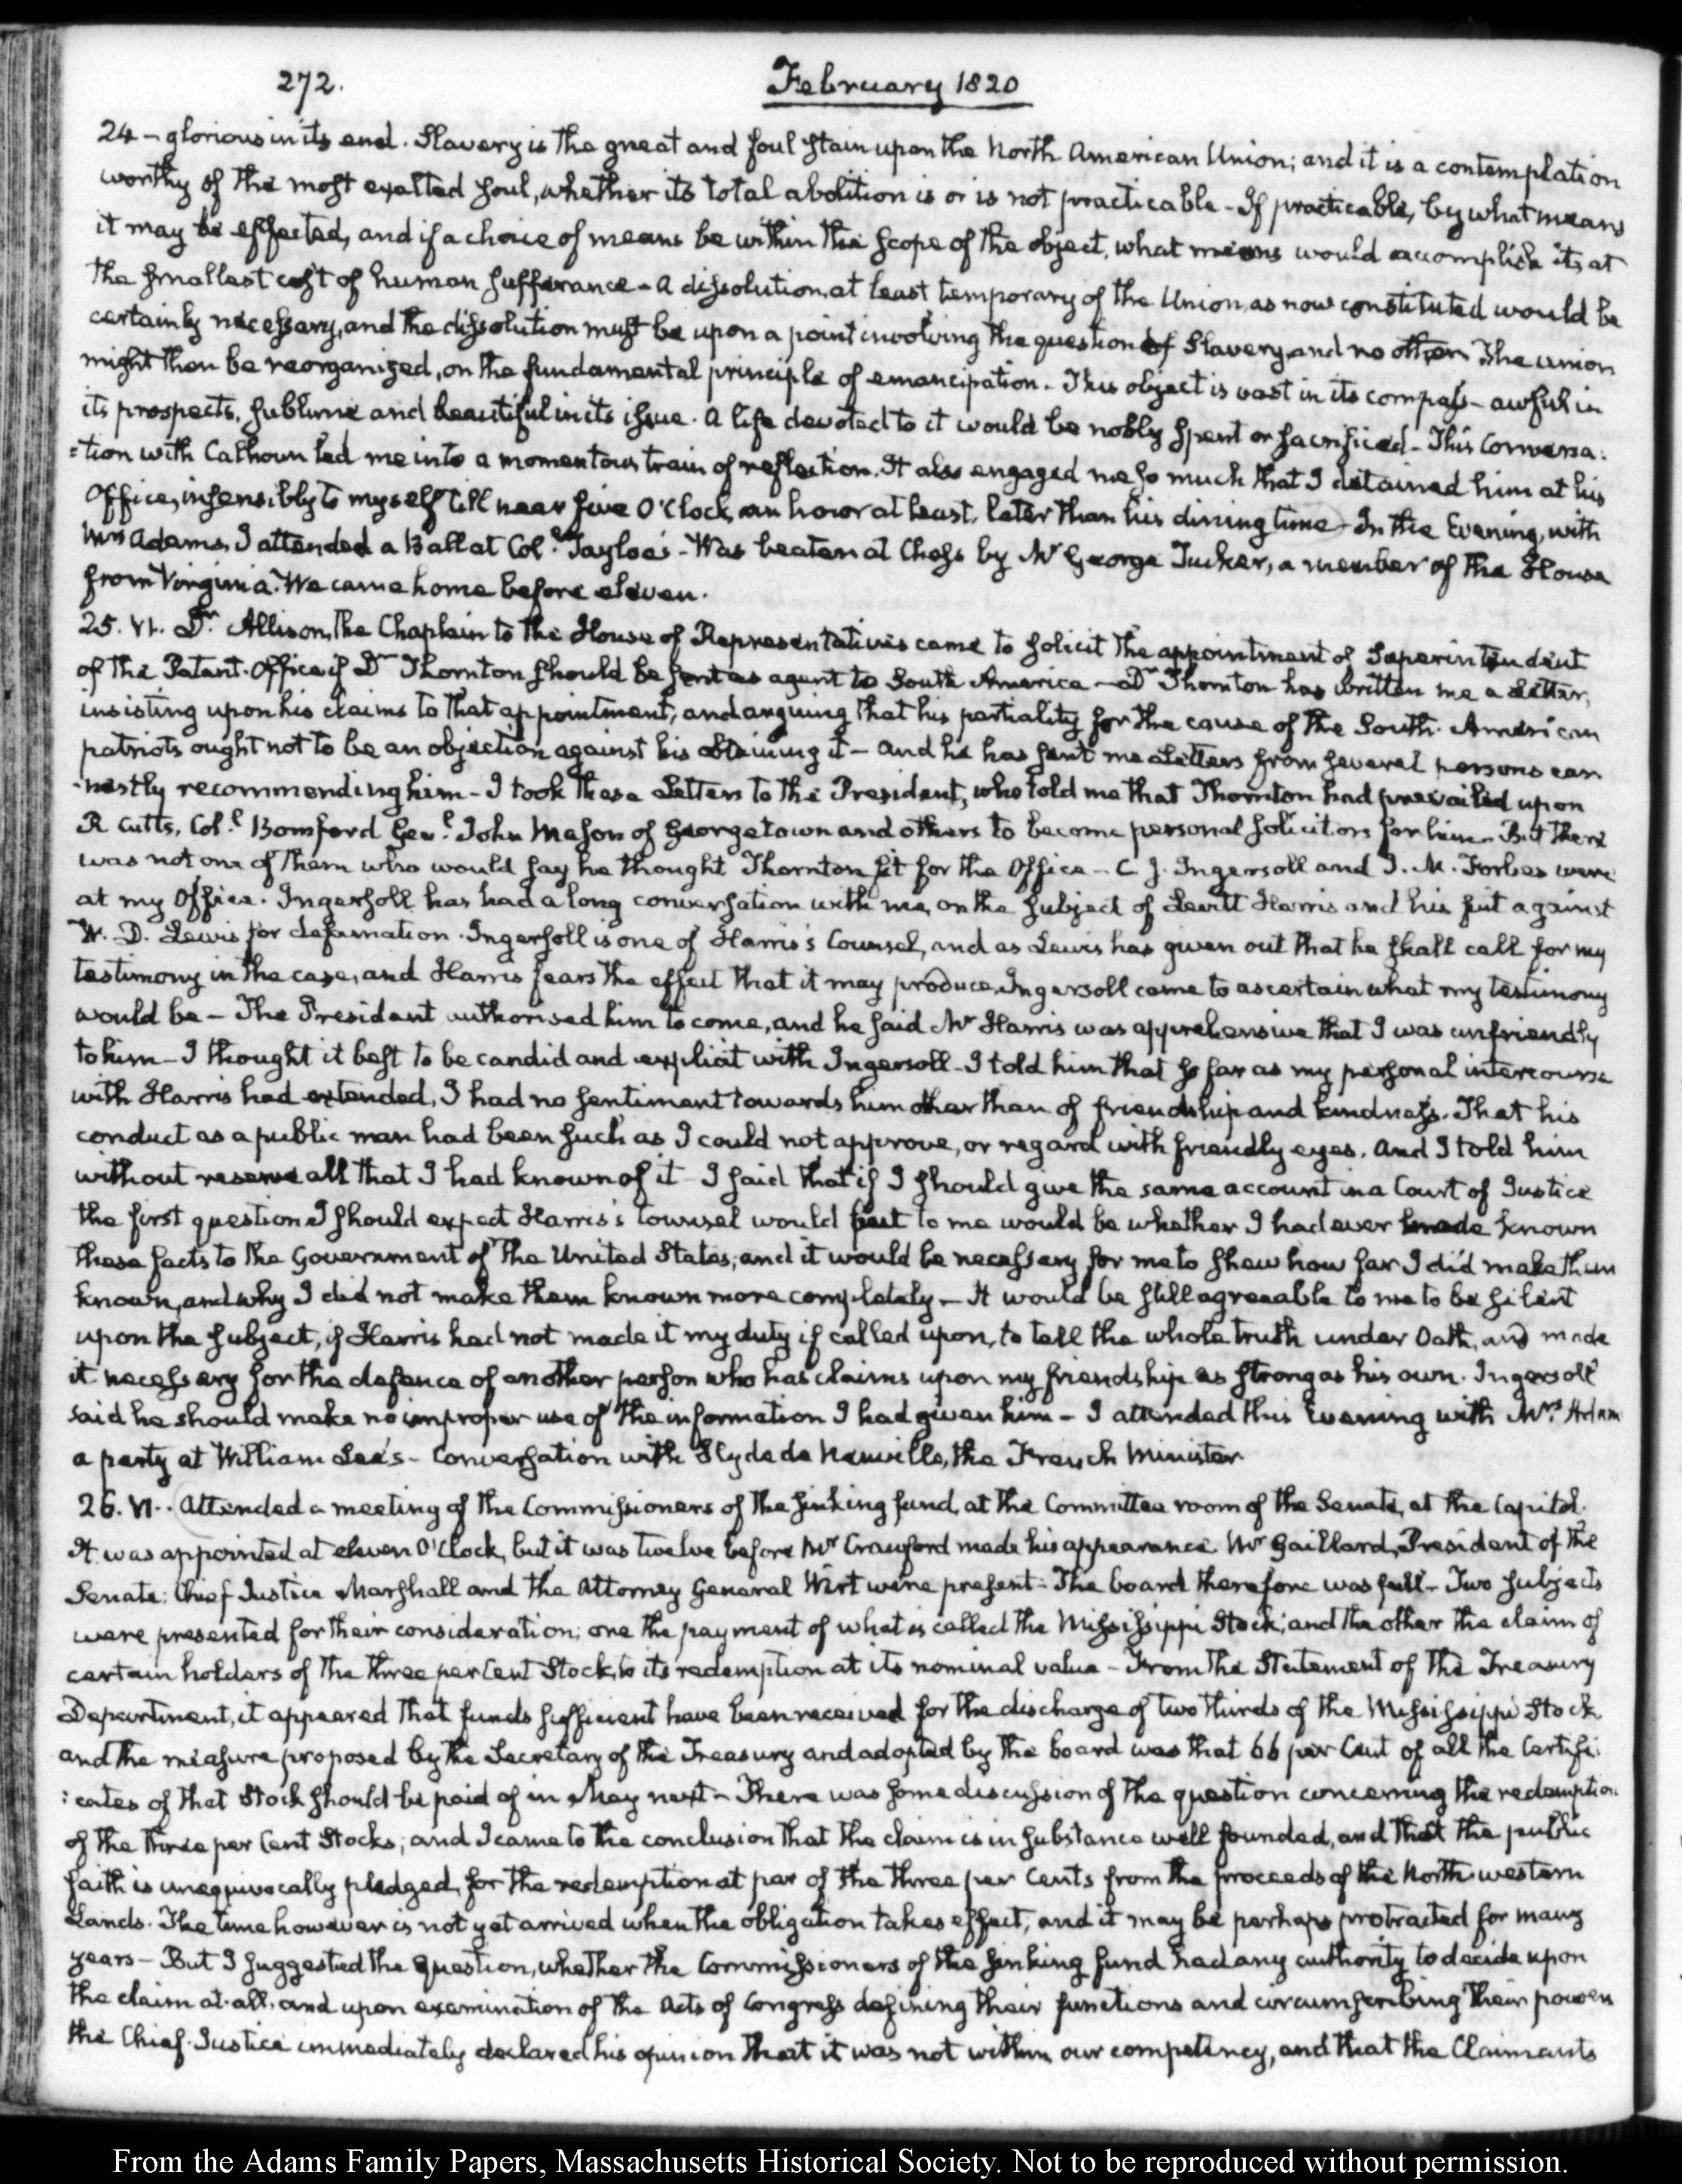 272.
February 1820
24 - glorious in its end. Slavery is the great and foul stain upon the North American Union; and it is a contemplation
worthy of the most exalted soul, whether its total abolition is or is not practicable - If practicable, by what means
it may be effected, and if a choice of means be within the scope of the object, what means would accomplish it, at
the smallest cost of human sufferance - A dissolution, at least temporary of the Union, as now constituted would be
certainly necessary, and the dissolution must be upon a point involving the question of Slavery, and no other. The union
might then be reorganized, on the fundamental principle of emancipation. This object is vast in its compass - awful in
its prospects, sublime and beautiful in its issue. A life devoted to it would be nobly spent or sacrificed - This Conversa:
=tion with Calhoun led me into a momentous train of reflection. It also engaged me so much that I detained him at his
Office, insensibly to myself till near five O'Clock, an hour at least, later than his dining time - In the Evening, with
Mrs Adams, I attended a Ball at Coll. Tayloe's - Was beaten at Chess by Mr George Tucker, a member of the House
from Virginia. We came home before eleven.
25. VI. Dr. Allison, the Chaplain to the House of Representatives came to solicit the appointment of Superintendent
of the Patent-Office if Dr Thornton should be sent as agent to South America - Dr Thornton has written me a Letter,
insisting upon his claims to that appointment, and arguing that his partiality for the cause of the South-American
patriots ought not to be an objection against his obtaining it - and he has sent me Letters from several persons ear
-nestly recommending him - I took these Letters to the President, who told me that Thornton had prevailed upon
R Cutts, Coll. Bomford Genl. John Mason of Georgetown and others to become personal solicitors for him - But there
was not one of them who would say he thought Thornton fit for the Office - C. J. Ingersoll and J. M. Forbes were
at my Office. Ingersoll has had a long conversation with me, on the subject of Levett Harris and his suit against
W. D. Lewis for defamation. Ingersoll is one of Harris's Counsel, and as Lewis has given out that he shall call for my
testimony in the case, and Harris fears the effect that it may produce, Ingersoll came to ascertain what my testimony
would be - The President authorised him to come, and he said Mr Harris was apprehensive that I was unfriendly
to him - I thought it best to be candid and explicit with Ingersoll - I told him that so far as my personal intercourse
with Harris had extended, I had no sentiment towards him other than of friendship and kindness. That his
conduct as a public man had been such as I could not approve, or regard with friendly eyes. And I told him
without reserve all that I had known of it - I said that if I should give the same account in a Court of Justice
the first question I should expect Harris's Counsel would put to me would be whether I had ever made known
these facts to the Government of the United States; and it would be necessary for me to shew how far I did make them
known, and why I did not make them known more completely - It would be still agreeable to me to be silent
upon the subject, if Harris had not made it my duty if called upon, to tell the whole truth under Oath, and made
it necessary for the defence of another person who has claims upon my friendship as strong as his own. Ingersoll
said he should make no improper use of the information I had given him - I attended this Evening with Mrs. Adam
a party at William Lee's - Conversation with Hyde de Neuville, the French Minister
26. VI.. Attended a meeting of the Commissioners of the sinking fund, at the Committee room of the Senate, at the Capitol.
It was appointed at eleven O'Clock, but it was twelve before Mr Crawford made his appearance. Mr Gaillard, President of the
Senate: Chief Justice Marshall and the Attorney General Wirt were present - The board therefore was full - Two subjects
were presented for their consideration; one the payment of what is called the Mississippi Stock; and the other the claim of
certain holders of the three per Cent Stock, to its redemption at its nominal value - From the Statement of the Treasury
Department, it appeared that funds sufficient have been received for the discharge of two thirds of the Mississippi Stock
and the measure proposed by the Secretary of the Treasury and adopted by the board was that 66 per Cent of all the Certifi:
:cates of that Stock should be paid of in May next - There was some discussion of the question concerning the redemption
of the three per Cent Stocks; and I came to the conclusion that the claim is in substance well founded, and that the public
faith is unequivocally pledged, for the redemption at par of the three per Cents from the proceeds of the North-western
Lands. The time however is not yet arrived when the obligation takes effect, and it may be perhaps protracted for many
years - But I suggested the question, whether the Commissioners of the sinking fund had any authority to decide upon
the claim at-all, and upon examination of the Acts of Congress defining their functions and circumscribing their powers
the Chief-Justice immediately declared his opinion that it was not within our competency, and that the Claimants
From the Adams Family Papers, Massachusetts Historical Society. Not to be reproduced without permission.